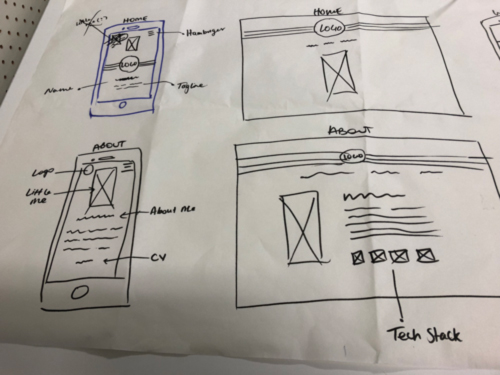 HOME
Hamburger
LOGO
Name
Tagline
HOME
LOGO
ABOUT
Logo
Little
Me
About Me
CV
ABOUT
LOGO
Tech Stack